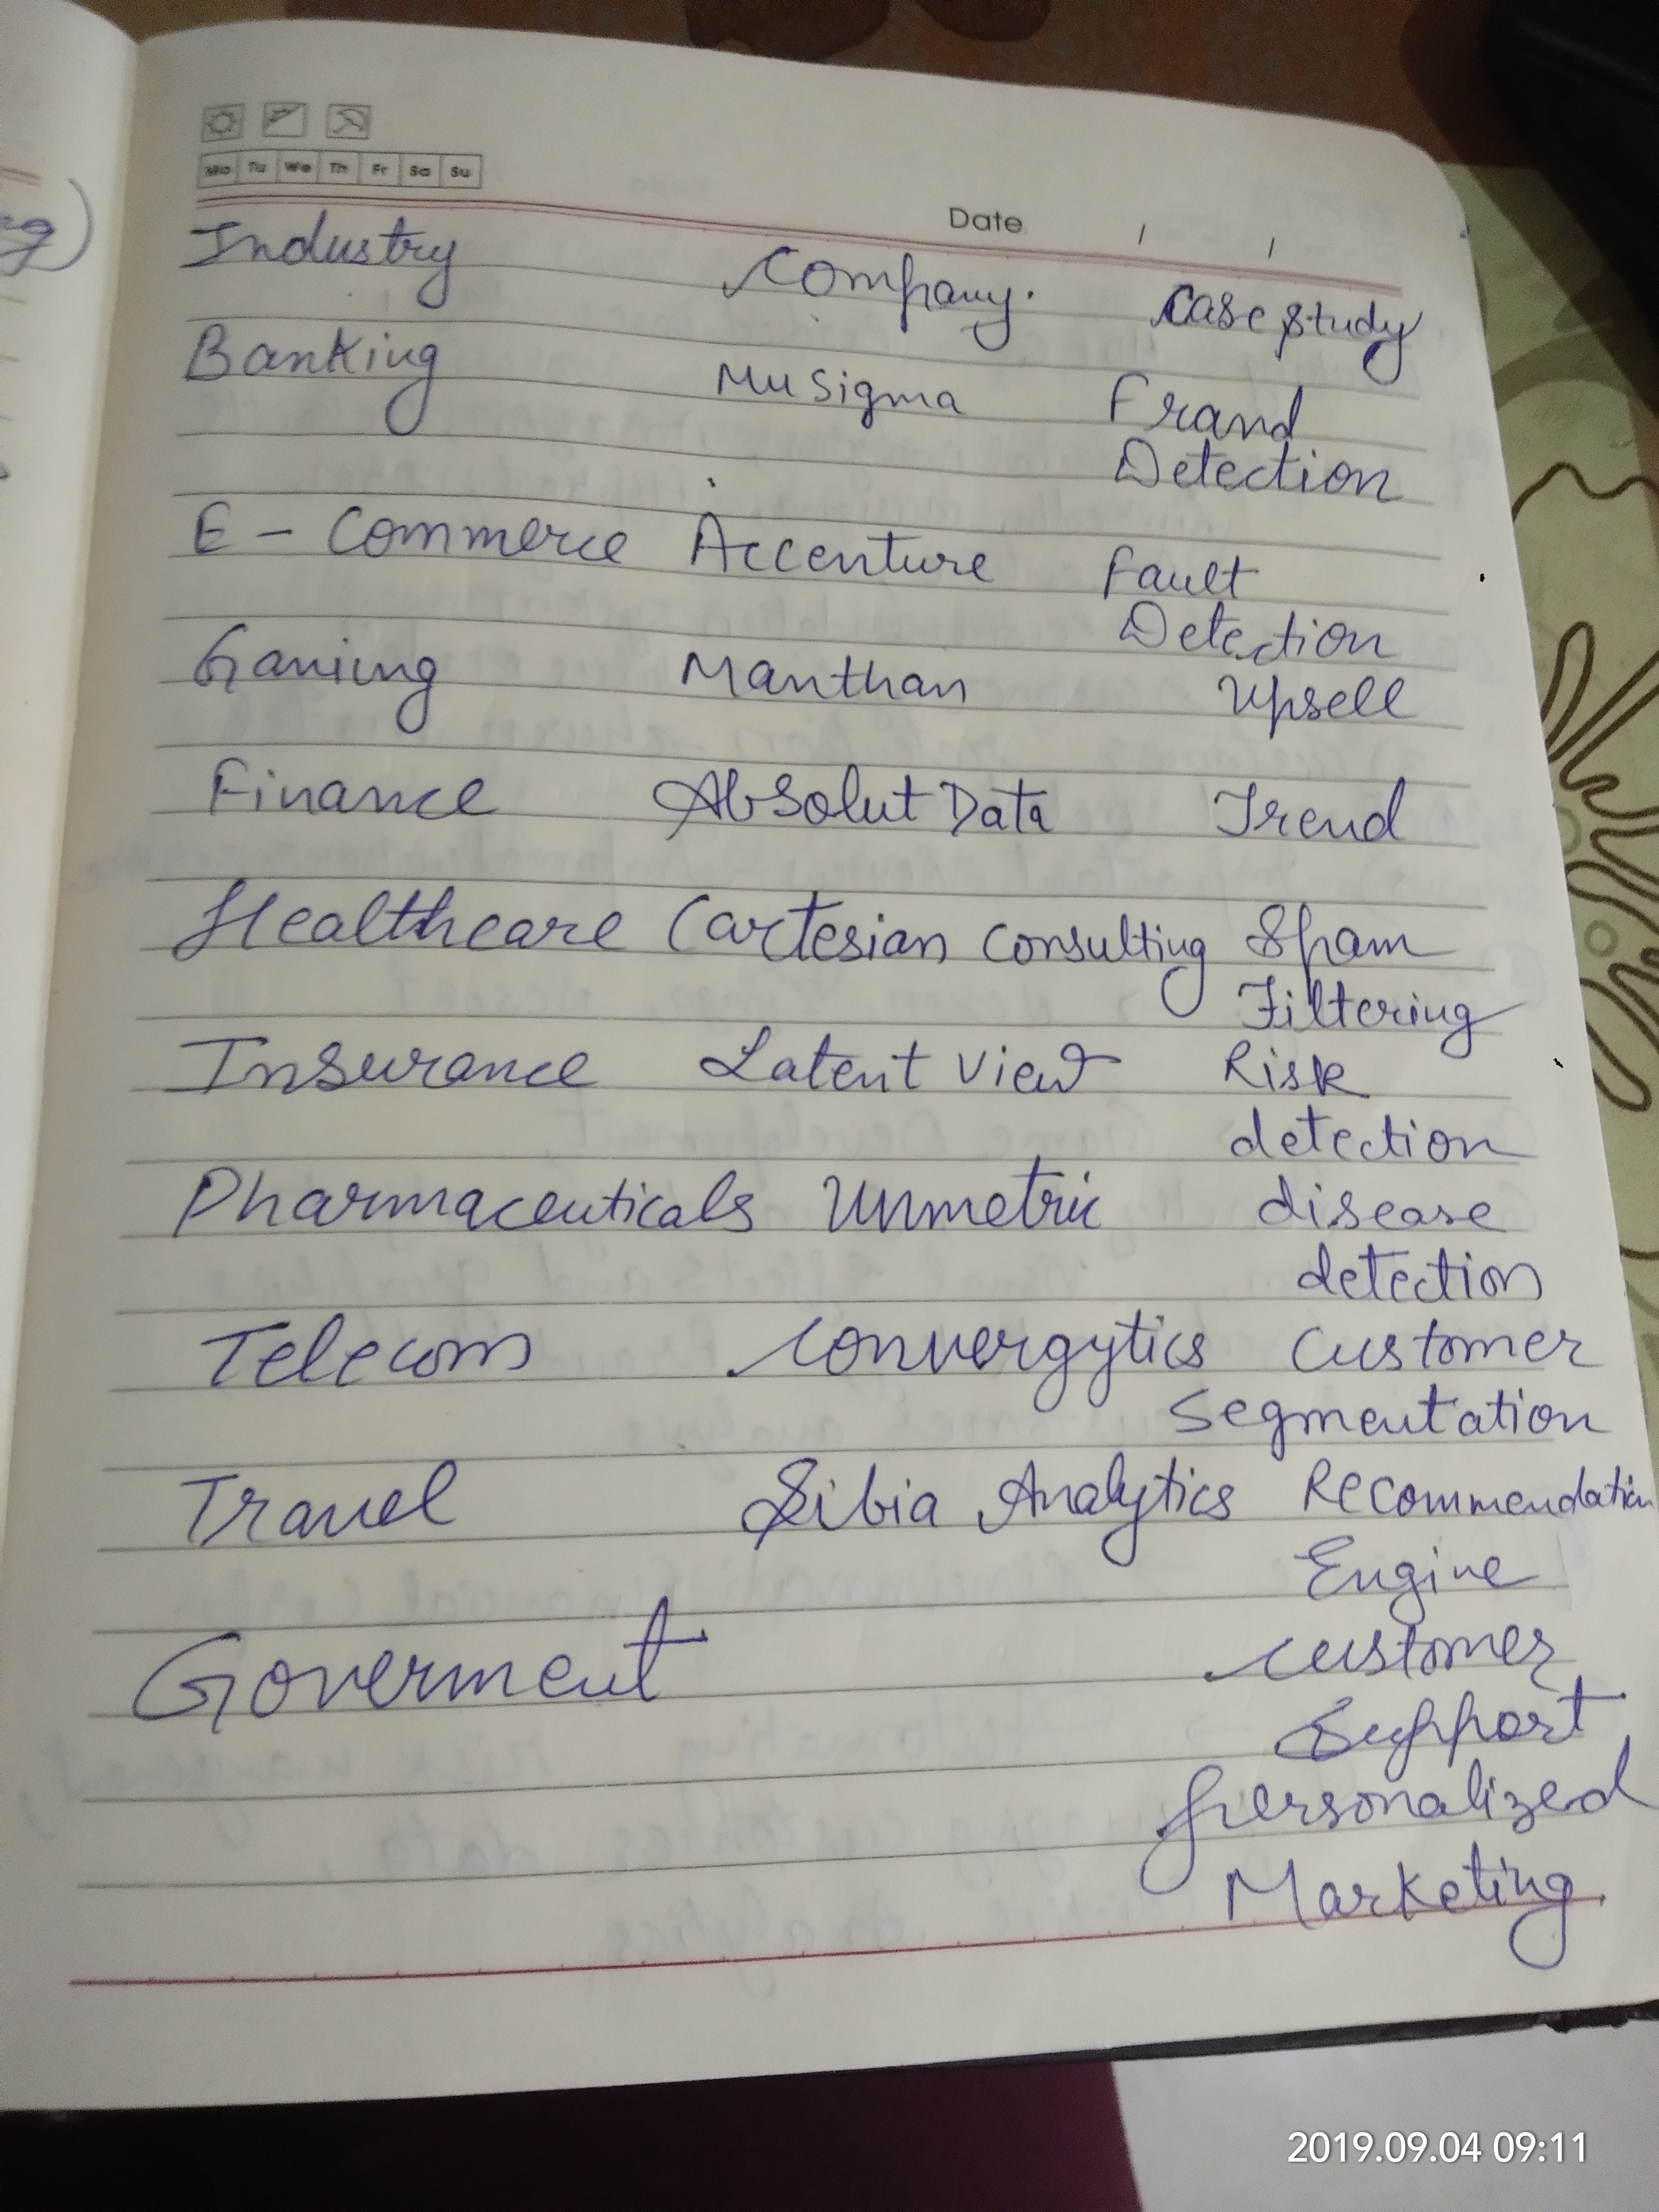 Mo Tu We Th Fr Sa Su
Date / /
Industry Company. Case study
Banking Mu Sigma Fraud
Detection
E - Commerce Accenture Fault
Detection
Gaming Manthan Upsell
Finance Absolut Data Trend
Healthcare Cartesian Consulting Spam
Filtering
Insurance Latent View Risk
detection
Pharmaceuticals Unmetric disease
detection
Telecom Convergytics Customer
Segmentation
Travel Sibia Analytics Recommendation
Engine
Goverment customer
Support
personalized
Marketing
2019.09.04 09:11